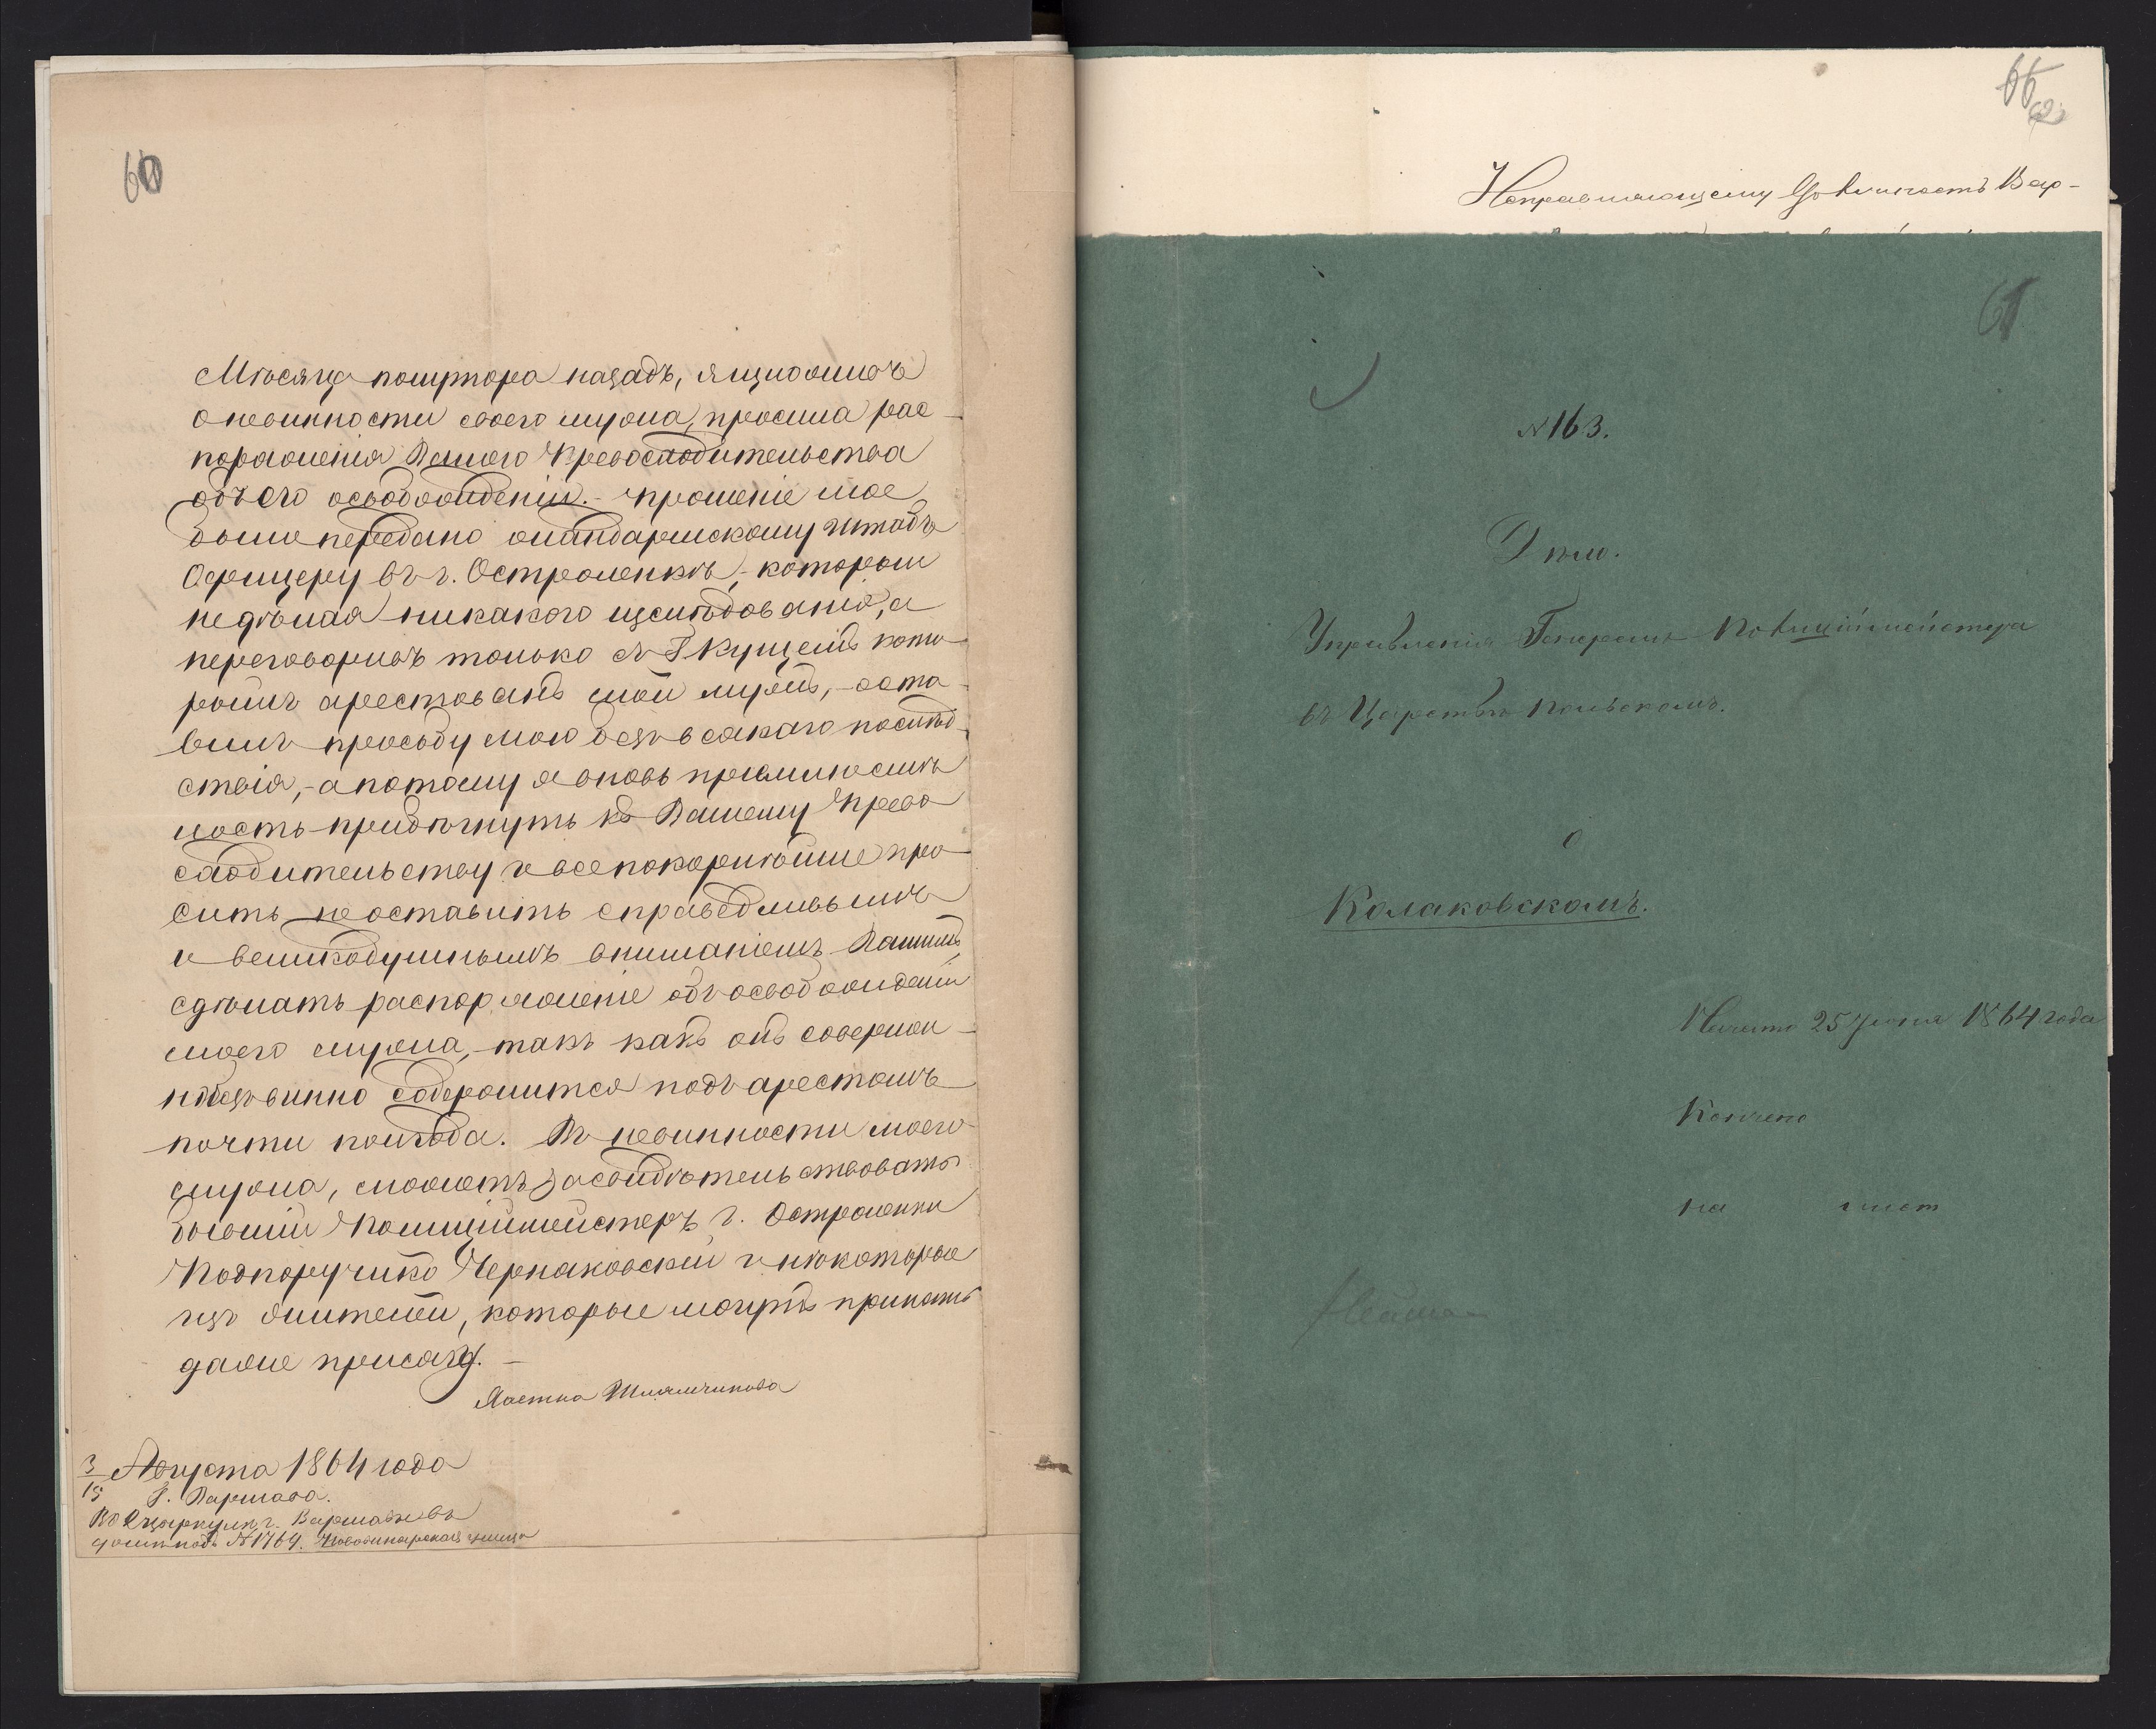 60
Мѣсяца полтора назадъ, я изложивъ
о невинности своего мужа, просила рас-
поряженія Вашего Превосходительства
объ его освобожденіи. - Прошеніе мое
было передано жандармскому Штабъ
Офицеру въ г. Остроленкѣ, - который
недѣлая никакого изслѣдованія, а
переговоривъ только съ Г. Куцемъ кото-
рымъ арестованъ мой мужъ, - оста-
вилъ прозьбу мою безъ всякаго послѣд-
ствія, - а потому я вновь
прибѣгнуть къ Вашему Прево-
сходительству и всепокорнѣйше про-
сить не оставить справедливымъ
и великодушнымъ вниманіемъ Вашимъ,
сдѣлать распоряженіе объ освобожденіи
моего мужа, - такъ какъ онъ совершен-
но безвинно содержится подъ арестомъ
почти полгода. Въ невинности моего
мужа, можетъ засвидѣтельствовать
бывшій Полиціймейстеръ г. Остроленки
Подпоручикъ Чернаковскій и нѣкоторые
изъ жителей, которые могутъ принять
даже присягу. -
3/15 Августа 1864 года
Г. Варшава.
Въ г. Варшавѣ въ
домѣ подъ № 1764. улица
66
62
Исправляющему Должность Вар-
61
№ 163.
Дѣло.
Управленія Генералъ-Полиціймейстера
въ Царствѣ Польскомъ.
О
Колаковскомъ.
Начато 25 Іюня 1864 года
Кончено
на лист